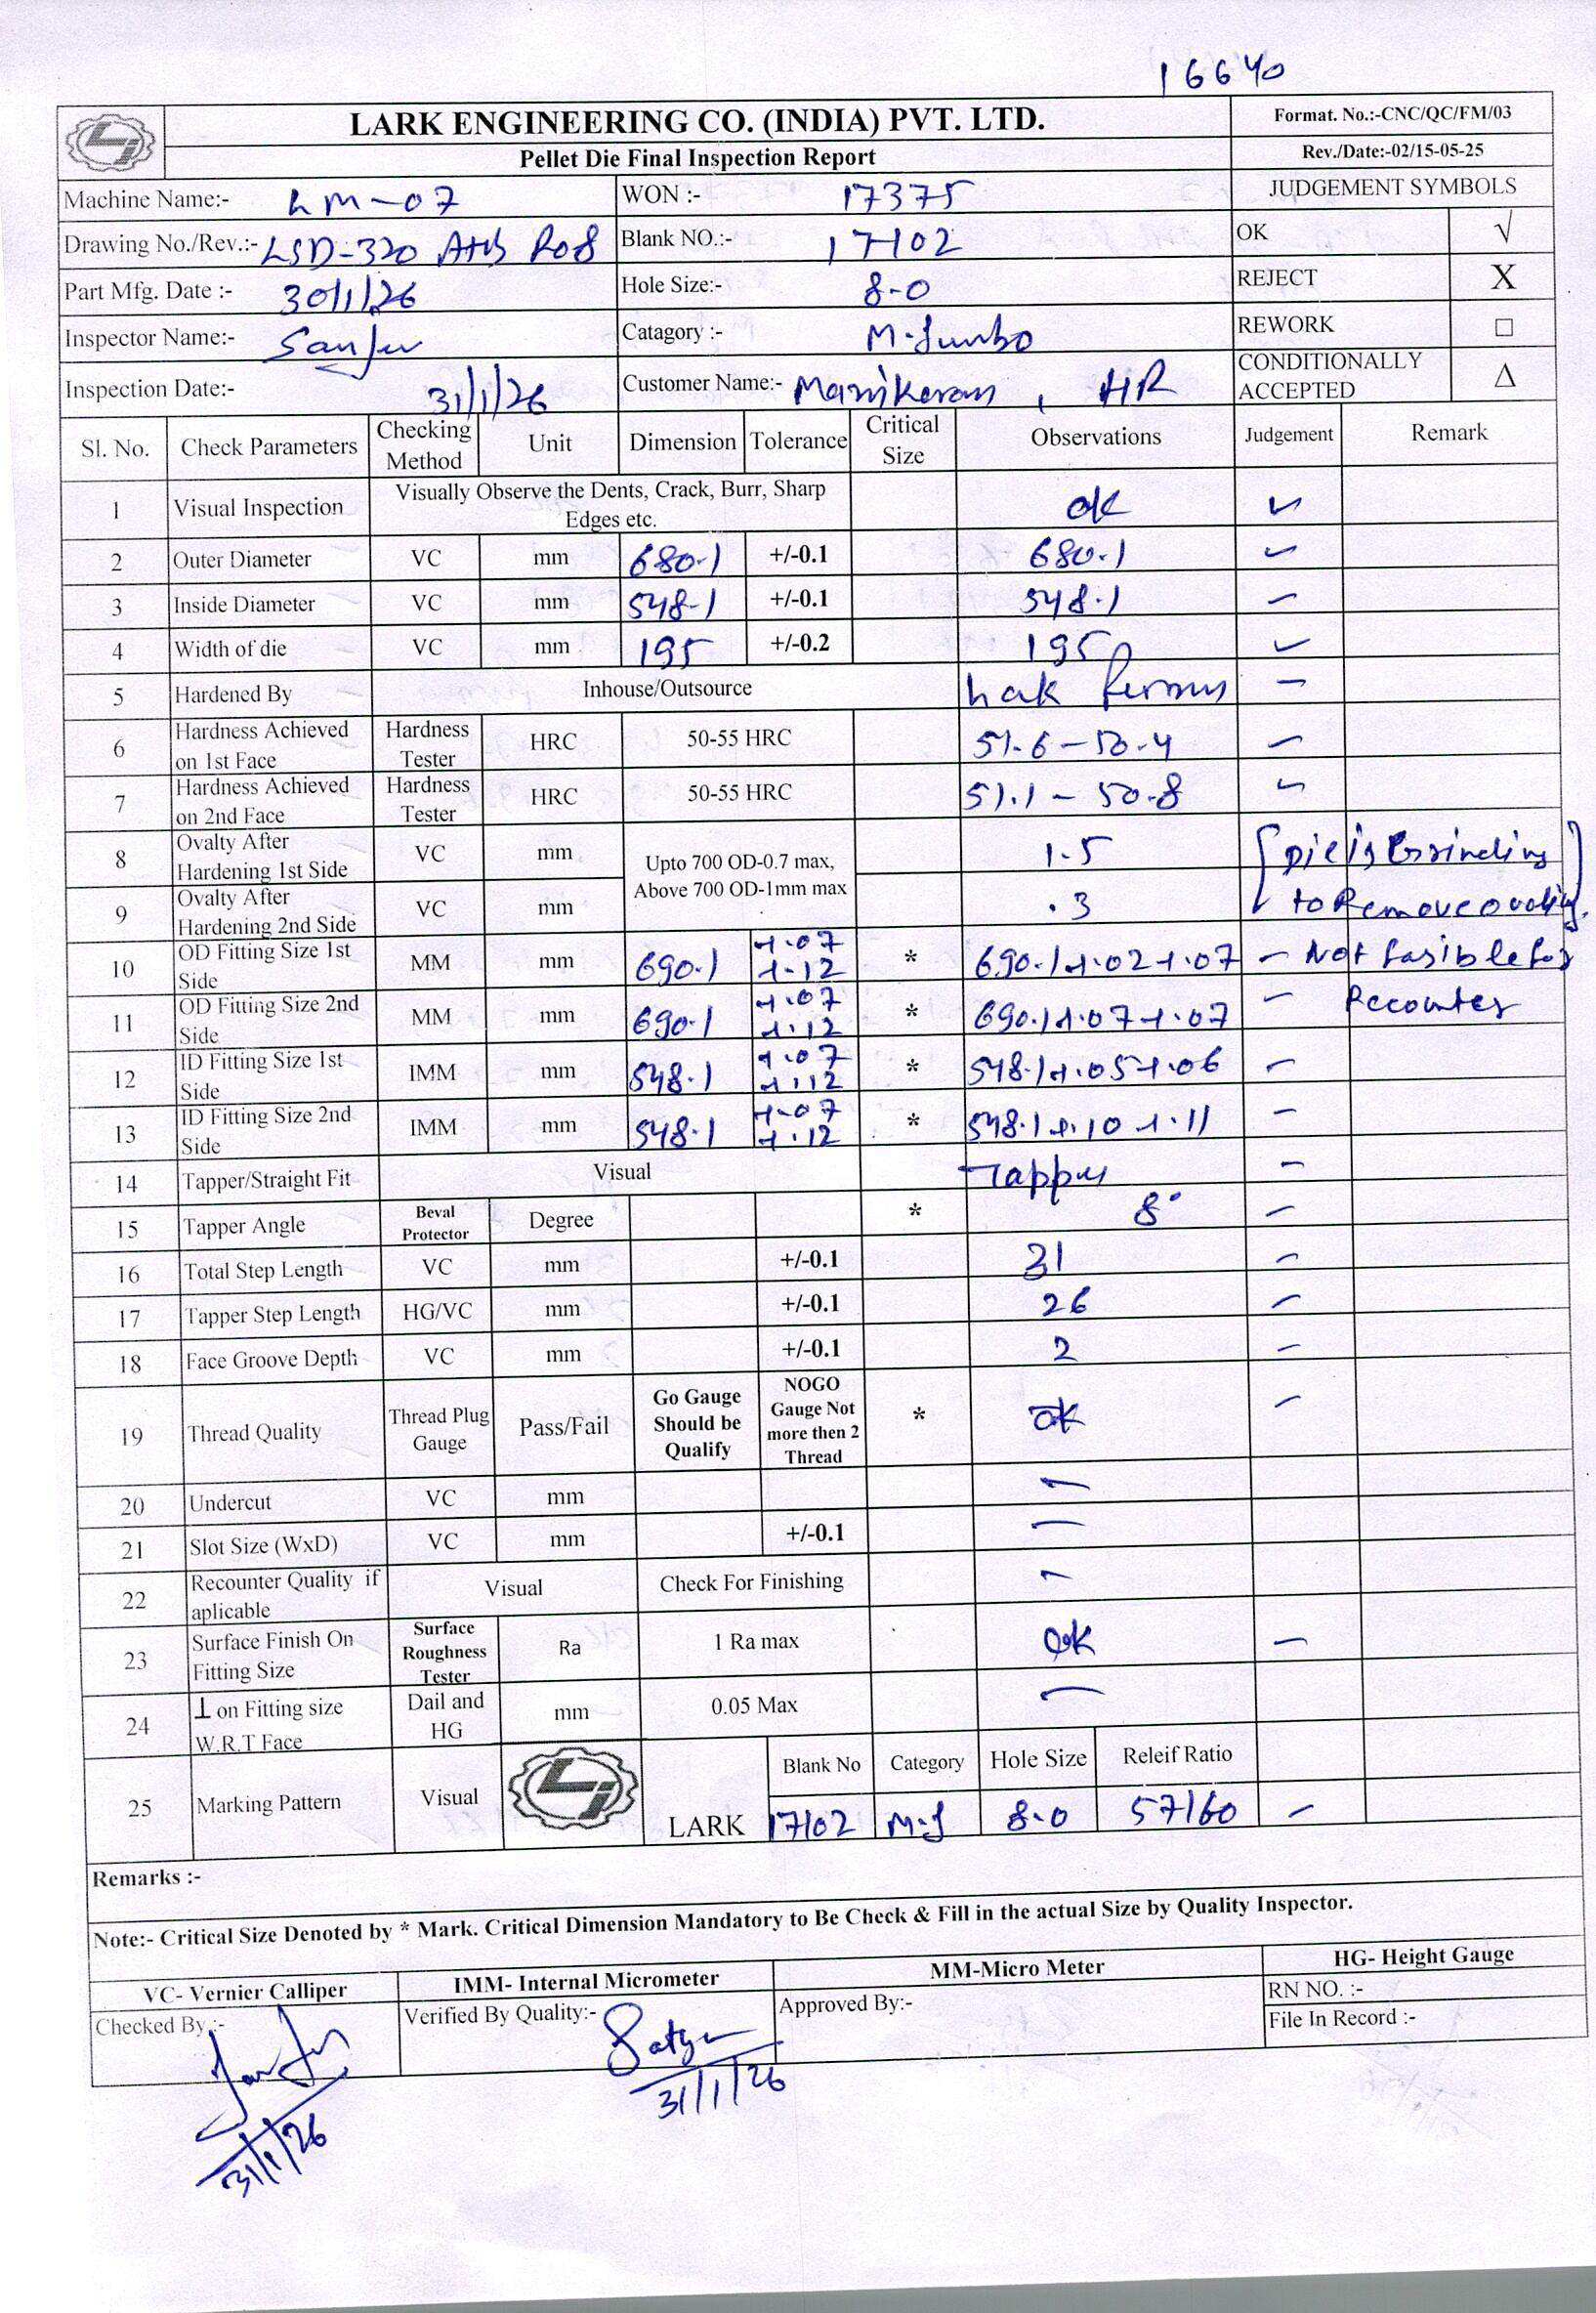 16640
LARK ENGINEERING CO. (INDIA) PVT. LTD.
Format. No.:-CNC/QC/FM/03
Pellet Die Final Inspection Report
Rev./Date:-02/15-05-25
Machine Name:- LM-07 WON :- 17375 JUDGEMENT SYMBOLS
Drawing No./Rev.:- LSD-320 R08 Blank NO.:- 17102 OK √
Part Mfg. Date :- 30/1/26 Hole Size:- 8.0 REJECT X
Inspector Name:- Sanjev Catagory :- M.Jumbo REWORK □
Inspection Date:- 31/1/26 Customer Name:- Manikaran, HR CONDITIONALLY ACCEPTED Δ
Sl. No. Check Parameters Checking Method Unit Dimension Tolerance Critical Size Observations Judgement Remark
1 Visual Inspection Visually Observe the Dents, Crack, Burr, Sharp Edges etc. ok ✓
2 Outer Diameter VC mm 680.1 +/-0.1 680.1 ✓
3 Inside Diameter VC mm 548.1 +/-0.1 548.1 ✓
4 Width of die VC mm 195 +/-0.2 195 ✓
5 Hardened By Inhouse/Outsource ✓
6 Hardness Achieved on 1st Face Hardness Tester HRC 50-55 HRC 51.6 - 50.4 ✓
7 Hardness Achieved on 2nd Face Hardness Tester HRC 50-55 HRC 51.1 - 50.8 ✓
8 Ovalty After Hardening 1st Side VC mm Upto 700 OD-0.7 max, Above 700 OD-1mm max 1.5 Die is Grinding
9 Ovalty After Hardening 2nd Side VC mm .3 to Remove ovality.
10 OD Fitting Size 1st Side MM mm 690.1 +.07 +.12 * 690.1+.02+.07 ✓ Not fasible for
11 OD Fitting Size 2nd Side MM mm 690.1 +.07 +.12 * 690.1+.07+.07 ✓ Recounter
12 ID Fitting Size 1st Side IMM mm 548.1 +.07 +.12 * 548.1+.05+.06 ✓
13 ID Fitting Size 2nd Side IMM mm 548.1 +.07 +.12 * 548.1+.10+.11 ✓
14 Tapper/Straight Fit Visual Tapper ✓
15 Tapper Angle Beval Protector Degree * 8° ✓
16 Total Step Length VC mm +/-0.1 31 ✓
17 Tapper Step Length HG/VC mm +/-0.1 26 ✓
18 Face Groove Depth VC mm +/-0.1 2 ✓
19 Thread Quality Thread Plug Gauge Pass/Fail Go Gauge Should be Qualify NOGO Gauge Not more then 2 Thread * ok ✓
20 Undercut VC mm —
21 Slot Size (WxD) VC mm +/-0.1 —
22 Recounter Quality if aplicable Visual Check For Finishing —
23 Surface Finish On Fitting Size Surface Roughness Tester Ra 1 Ra max ok ✓
24 ⊥ on Fitting size W.R.T Face Dail and HG mm 0.05 Max —
25 Marking Pattern Visual LARK Blank No Category Hole Size Releif Ratio
17102 M.J 8.0 57/60 ✓
Remarks :-
Note:- Critical Size Denoted by * Mark. Critical Dimension Mandatory to Be Check & Fill in the actual Size by Quality Inspector.
VC- Vernier Calliper IMM- Internal Micrometer MM-Micro Meter HG- Height Gauge
Checked By :- Verified By Quality:- Satya Approved By:- RN NO. :-
File In Record :-
31/1/26
31/1/26